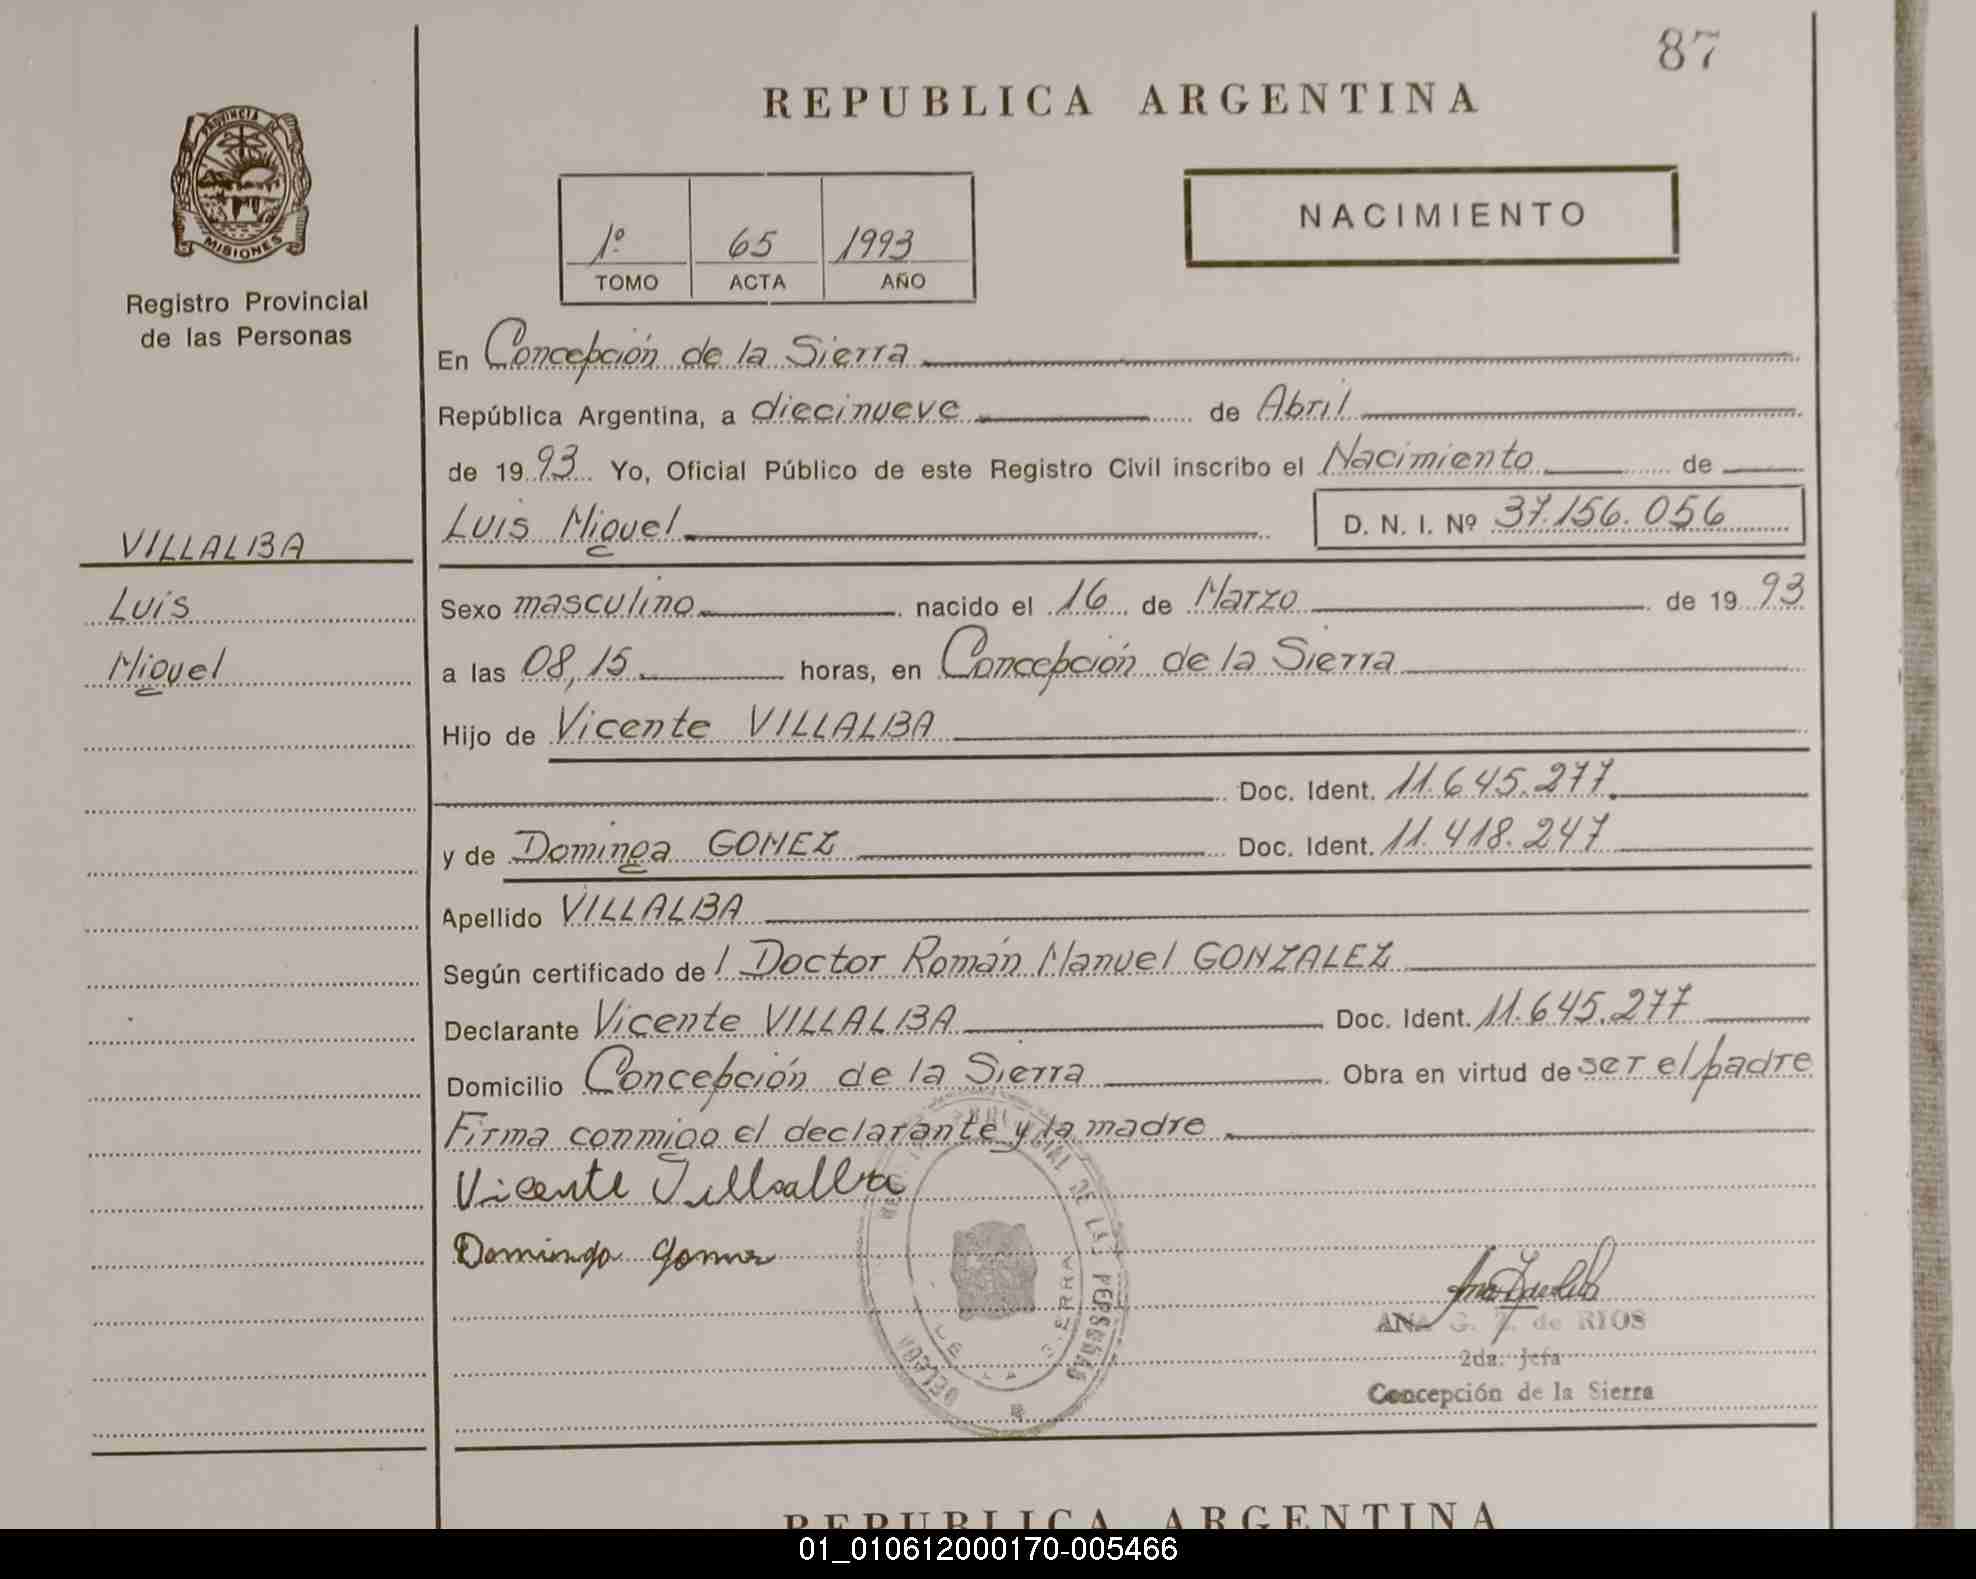 87
REPUBLICA ARGENTINA
PROVINCIA DE
MISIONES
Registro Provincial
de las Personas
1º 65 1993
TOMO ACTA AÑO
NACIMIENTO
En Concepción de la Sierra
República Argentina, a diecinueve de Abril
de 1993 Yo, Oficial Público de este Registro Civil inscribo el Nacimiento de
Luis Miguel D. N. I. Nº 37.156.056
VILLALBA
Luis
Miguel
Sexo masculino nacido el 16 de Marzo de 1993
a las 08,15 horas, en Concepción de la Sierra
Hijo de Vicente VILLALBA
Doc. Ident. 11.645.277.
y de Dominga GOMEZ Doc. Ident. 11.418.247
Apellido VILLALBA
Según certificado del Doctor Román Manuel GONZALEZ
Declarante Vicente VILLALBA Doc. Ident. 11.645.277
Domicilio Concepción de la Sierra Obra en virtud de ser el padre
Firma conmigo el declarante y la madre
Vicente Villalba
Dominga Gomez
DE LAS PERSONAS
ANA G. de RIOS
2da. Jefa
Concepción de la Sierra
REPUBLICA ARGENTINA
01_010612000170-005466